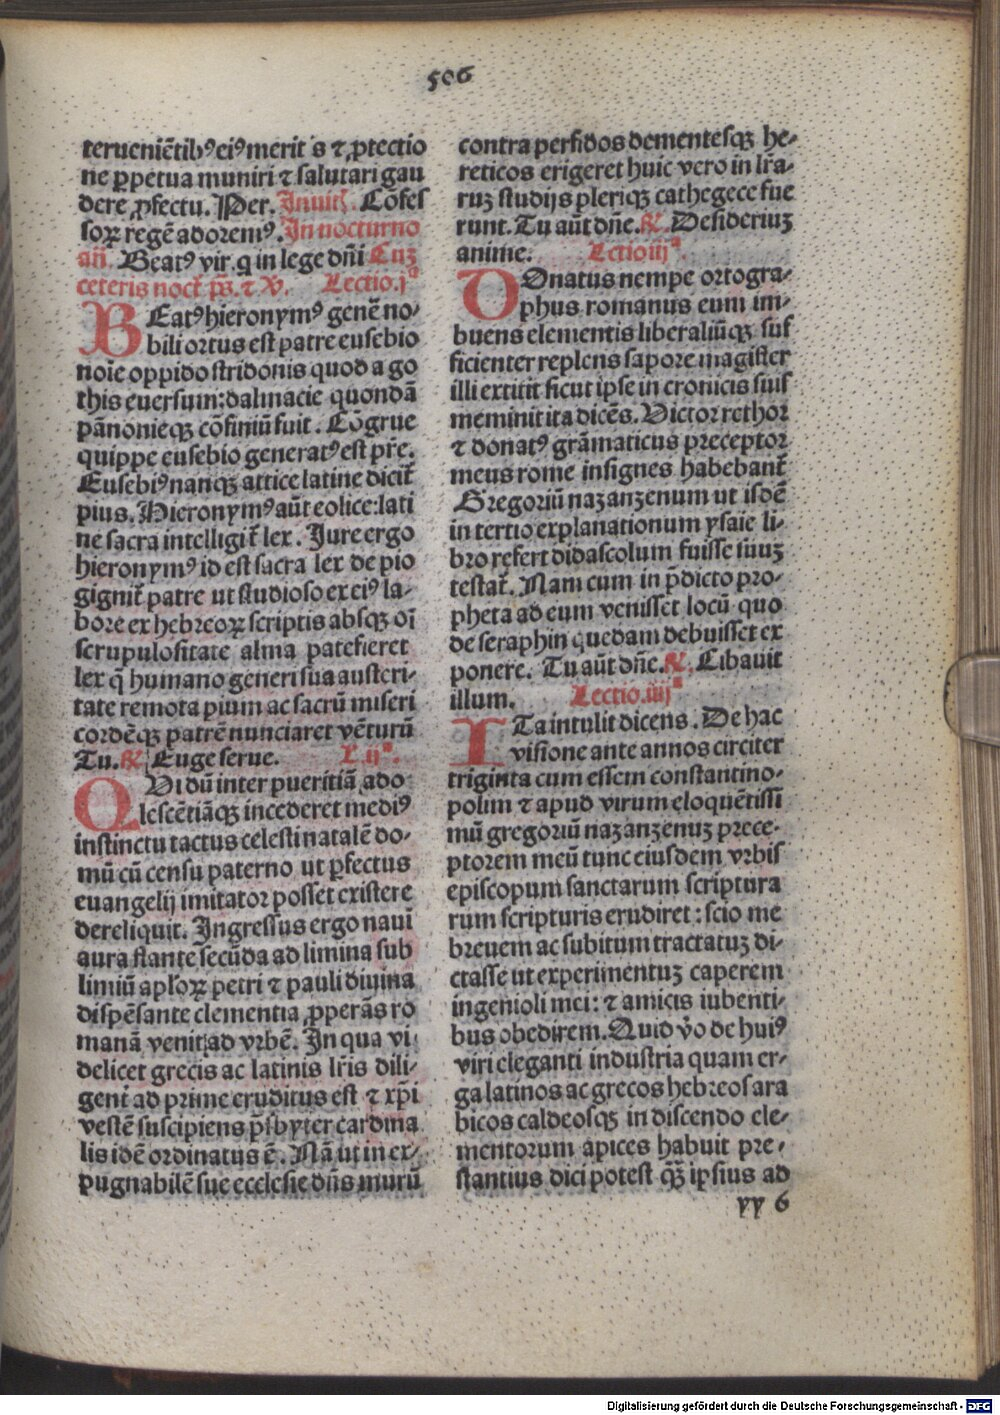 506
teruenie̅tibꝰ eiꝰ merit s ⁊ ꝓtectio
ne ꝑpetua muniri ⁊ salutari gau
dere ꝓfectu. Per. Inuit̉. Co̅fes
soꝝ rege̅ adoremꝰ. In nocturno
an̅. Beatꝰ vir. q in lege dn̅i Cuꝫ
ceteris noct̉ ps̅. ⁊ V. Lectio.jª
BEatꝰ hieronymꝰ gene̅ no⸗
bili ortus est patre eusebio
no̅ie oppido stridonis quod a go
this euersum: dalmacie quonda̅
pa̅nonieqꝫ co̅finiu̅ fuit. Co̅grue
quippe eusebio generatꝰ est pr̅e.
Eusebiꝰ nanqꝫ attice latine dicit̉
pius. Hieronymꝰ au̅t eolice: lati
ne sacra intelligit̉ lex. Jure ergo
hieronymꝰ id est sacra lex de pio
gignit̉ patre ut studioso ex eiꝰ la⸗
bore ex hebreoꝝ scriptis absqꝫ oi̅
scrupulositate alma patefieret
lex q̅ humano generi sua austeri⸗
tate remota pium ac sacru̅ miseri
corde̅qꝫ patre̅ nunciaret ve̅turu̅
Tu. ℟ Euge serue. L.ijª.
QVi du̅ inter pueritia̅ ado
lesce̅tia̅qꝫ incederet mediꝰ
instinctu tactus celesti natale̅ do⸗
mu̅ cu̅ censu paterno ut ꝑfectus
euangelij imitator posset existere
dereliquit. Ingressus ergo naui
aura flante secu̅da ad limina sub
limiu̅ apl̅oꝝ petri ⁊ pauli diuina
dispe̅sante clementia ꝓpera̅s ro
mana̅ venit ad vrbe̅. In qua vi
delicet grecis ac latinis lr̅is dili⸗
gent̉ ad prime eruditus est ⁊ xp̅i
veste̅ suscipiens p̅sbyter cardina
lis ide̅ ordinatus e̅. Na̅ ut in ex⸗
pugnabile̅ sue ecclesie dn̅s muru̅
contra perfidos dementesqꝫ he⸗
reticos erigeret huic vero in lr̅a⸗
ruꝫ studijs pleriqꝫ cathegece fue
runt. Tu au̅t dn̅e. ℟. Desideriuꝫ
anime. Lectio iijª.
DOnatus nempe ortogra⸗
phus romanus eum im⸗
buens elementis liberaliu̅qꝫ suf
ficienter replens sapore magister
illi extitit sicut ipse in cronicis suis
meminit ita dice̅s. Victor rethor
⁊ donatꝰ gra̅maticus preceptor
meus rome insignes habebant̉
Gregoriu̅ nazanzenum ut isde̅
in tertio explanationum ysaie li⸗
bro refert didascolum fuisse suuꝫ
testat̉. Nam cum in p̅dicto pro⸗
pheta ad eum venisset locu̅ quo
de seraphin quedam debuisset ex
ponere. Tu au̅t dn̅e. ℟. Cibauit
illum. Lectio.iiijª
ITa intulit dicens. De hac
visione ante annos circiter
triginta cum essem constantino⸗
polim ⁊ apud virum eloque̅tissi
mu̅ gregoriu̅ nazanzenuꝫ prece⸗
ptorem meu̅ tunc eiusdem vrbis
episcopum sanctarum scriptura
rum scripturis erudiret: scio me
breuem ac subitum tractatuꝫ di⸗
ctasse ut experimentuꝫ caperem
ingenioli mei: ⁊ amicis iubenti⸗
bus obedirem. Quid v̅o de huiꝰ
viri eleganti industria quam er⸗
ga latinos ac grecos hebreos ara
bicos caldeosqꝫ in discendo ele⸗
mentorum apices habuit pre⸗
stantius dici potest qꝫ̅ ipsius ad
yy 6
Digitalisierung gefördert durch die Deutsche Forschungsgemeinschaft - DFG